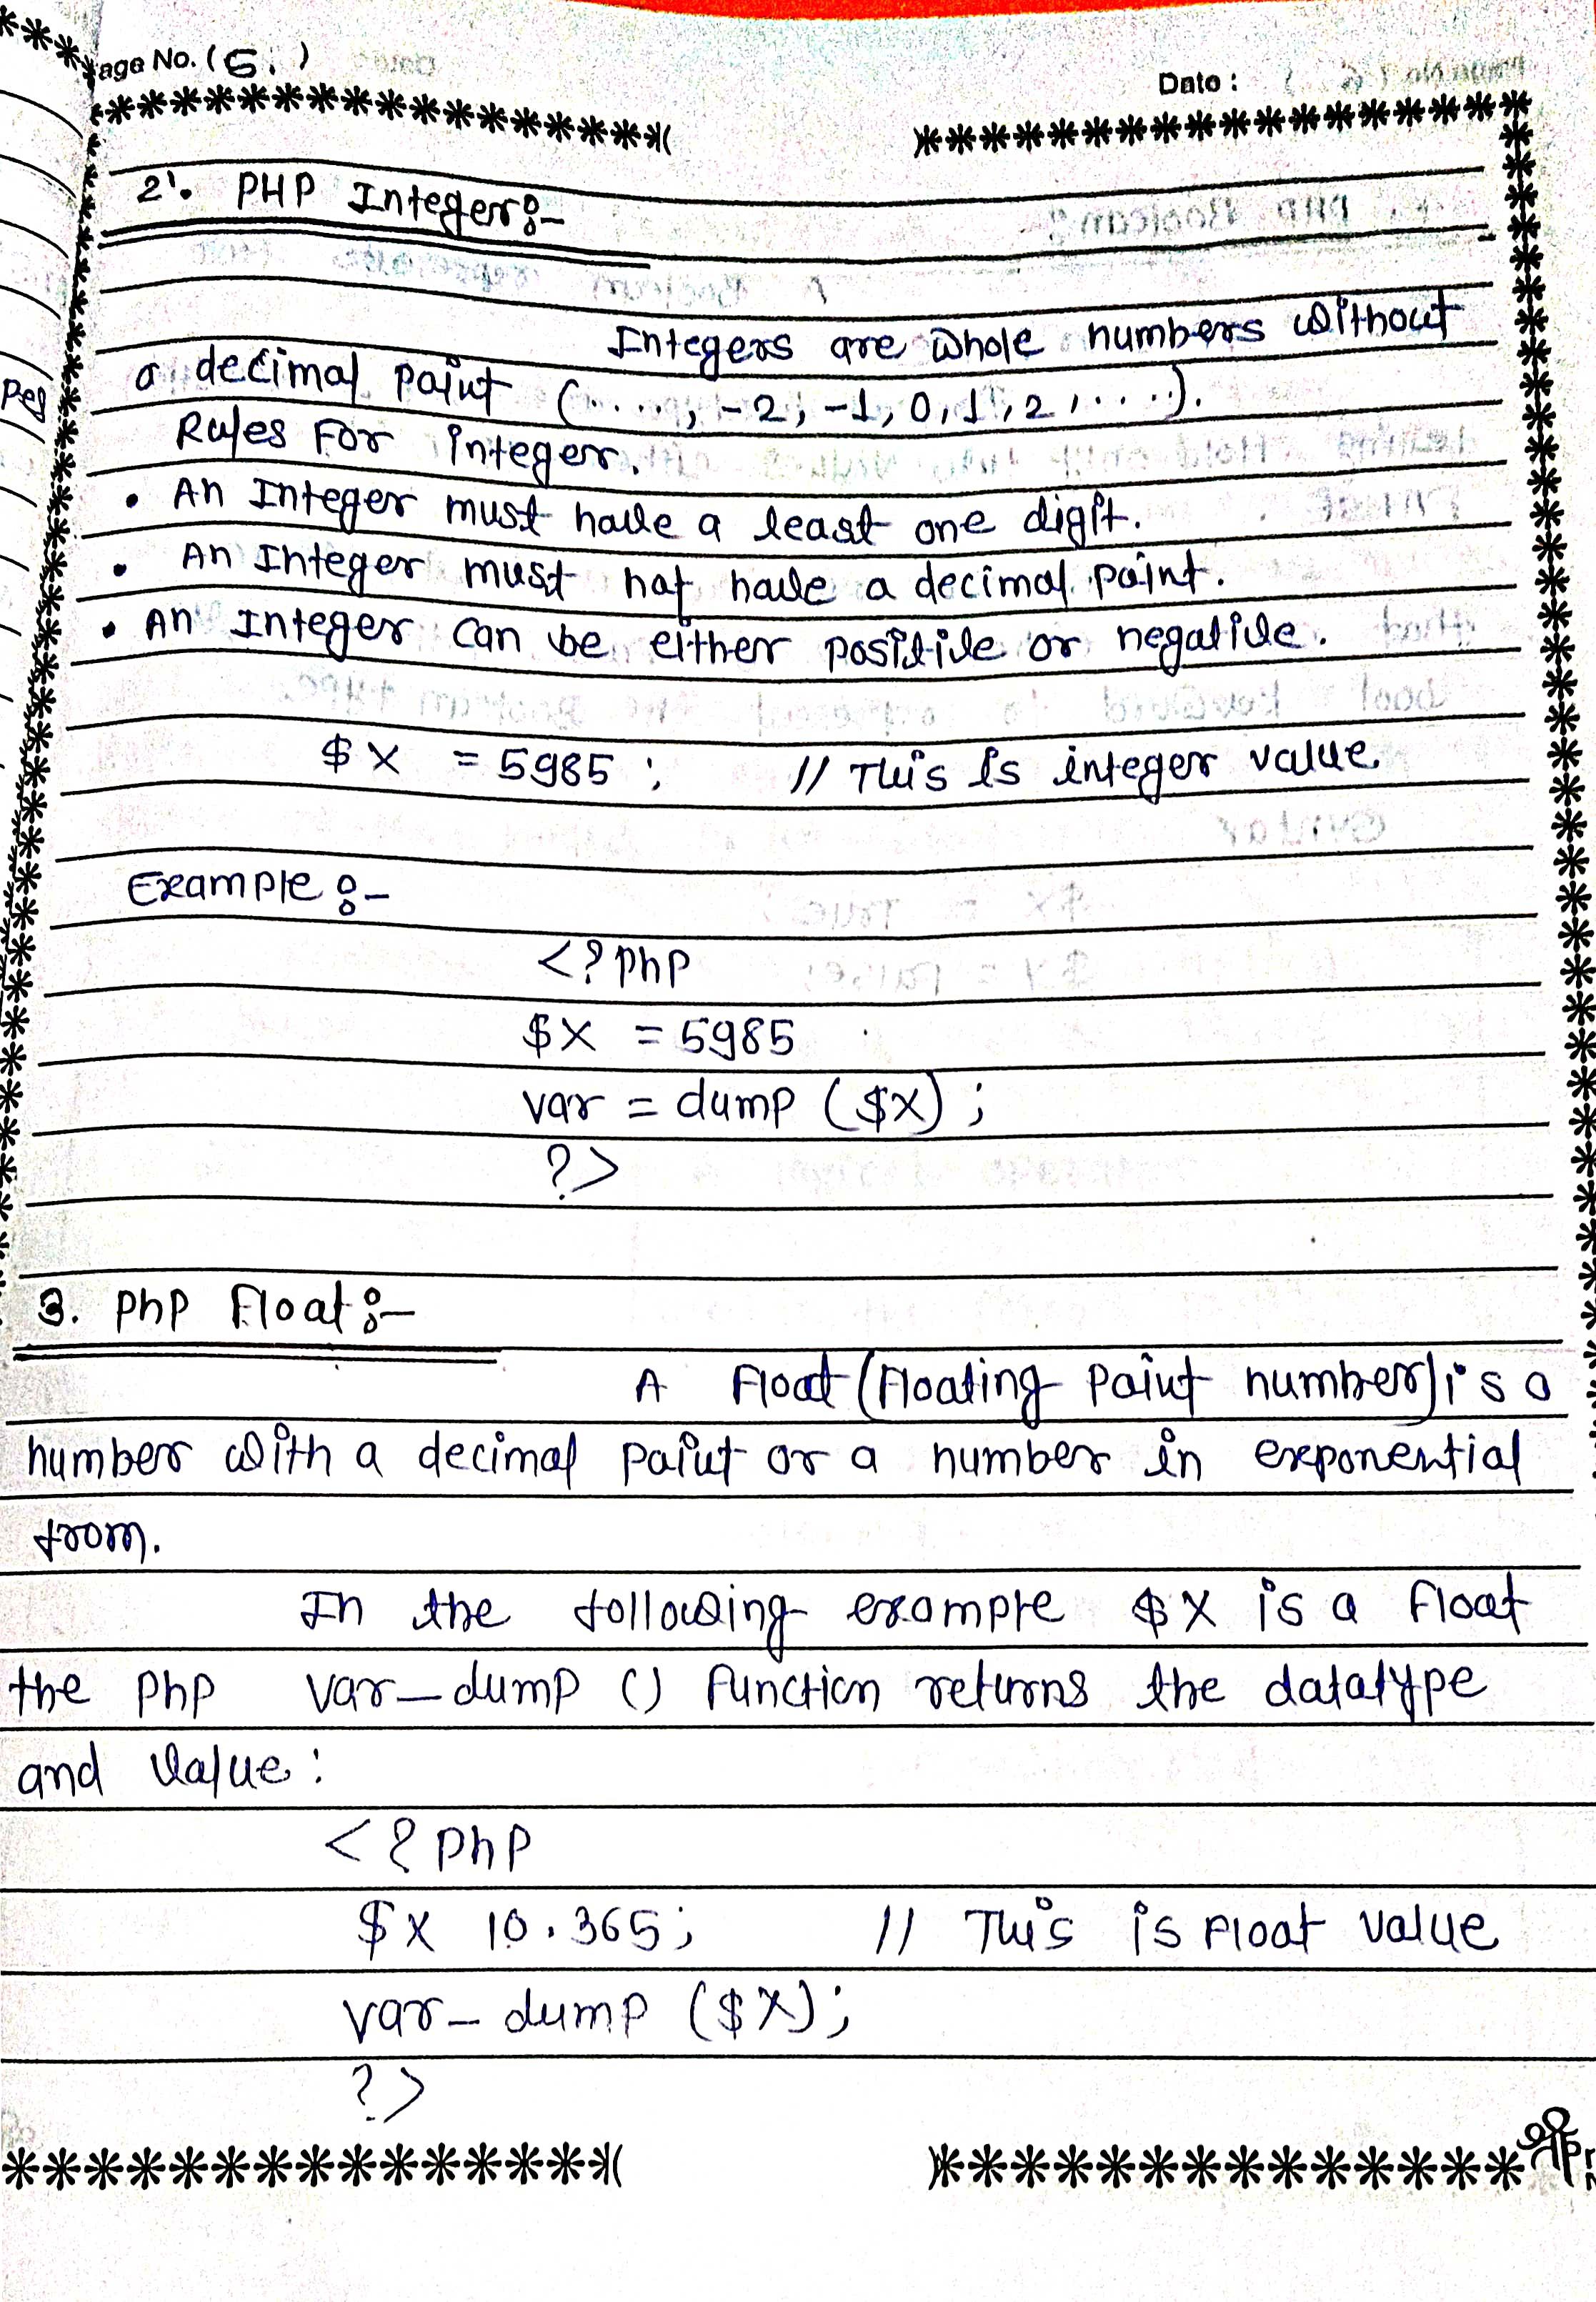 Page No. (5.)
Date :
2. PHP Integer:-
Integers are whole numbers without
a decimal point (...., -2, -1, 0, 1, 2, ....).
Rules For integer.
• An Integer must have a least one digit.
• An Integer must not have a decimal point.
• An Integer can be either positive or negative.
$x = 5985 ; // This is integer value
Example :-
<?php
$x = 5985
var = dump ($x) ;
?>
3. php Float :-
A Float (Floating Point number) is a
number with a decimal point or a number in exponential
from.
In the following example $x is a float
the php var_dump () function returns the datatype
and value :
<?php
$x 10.365; // This is float value
var_dump ($x);
?>